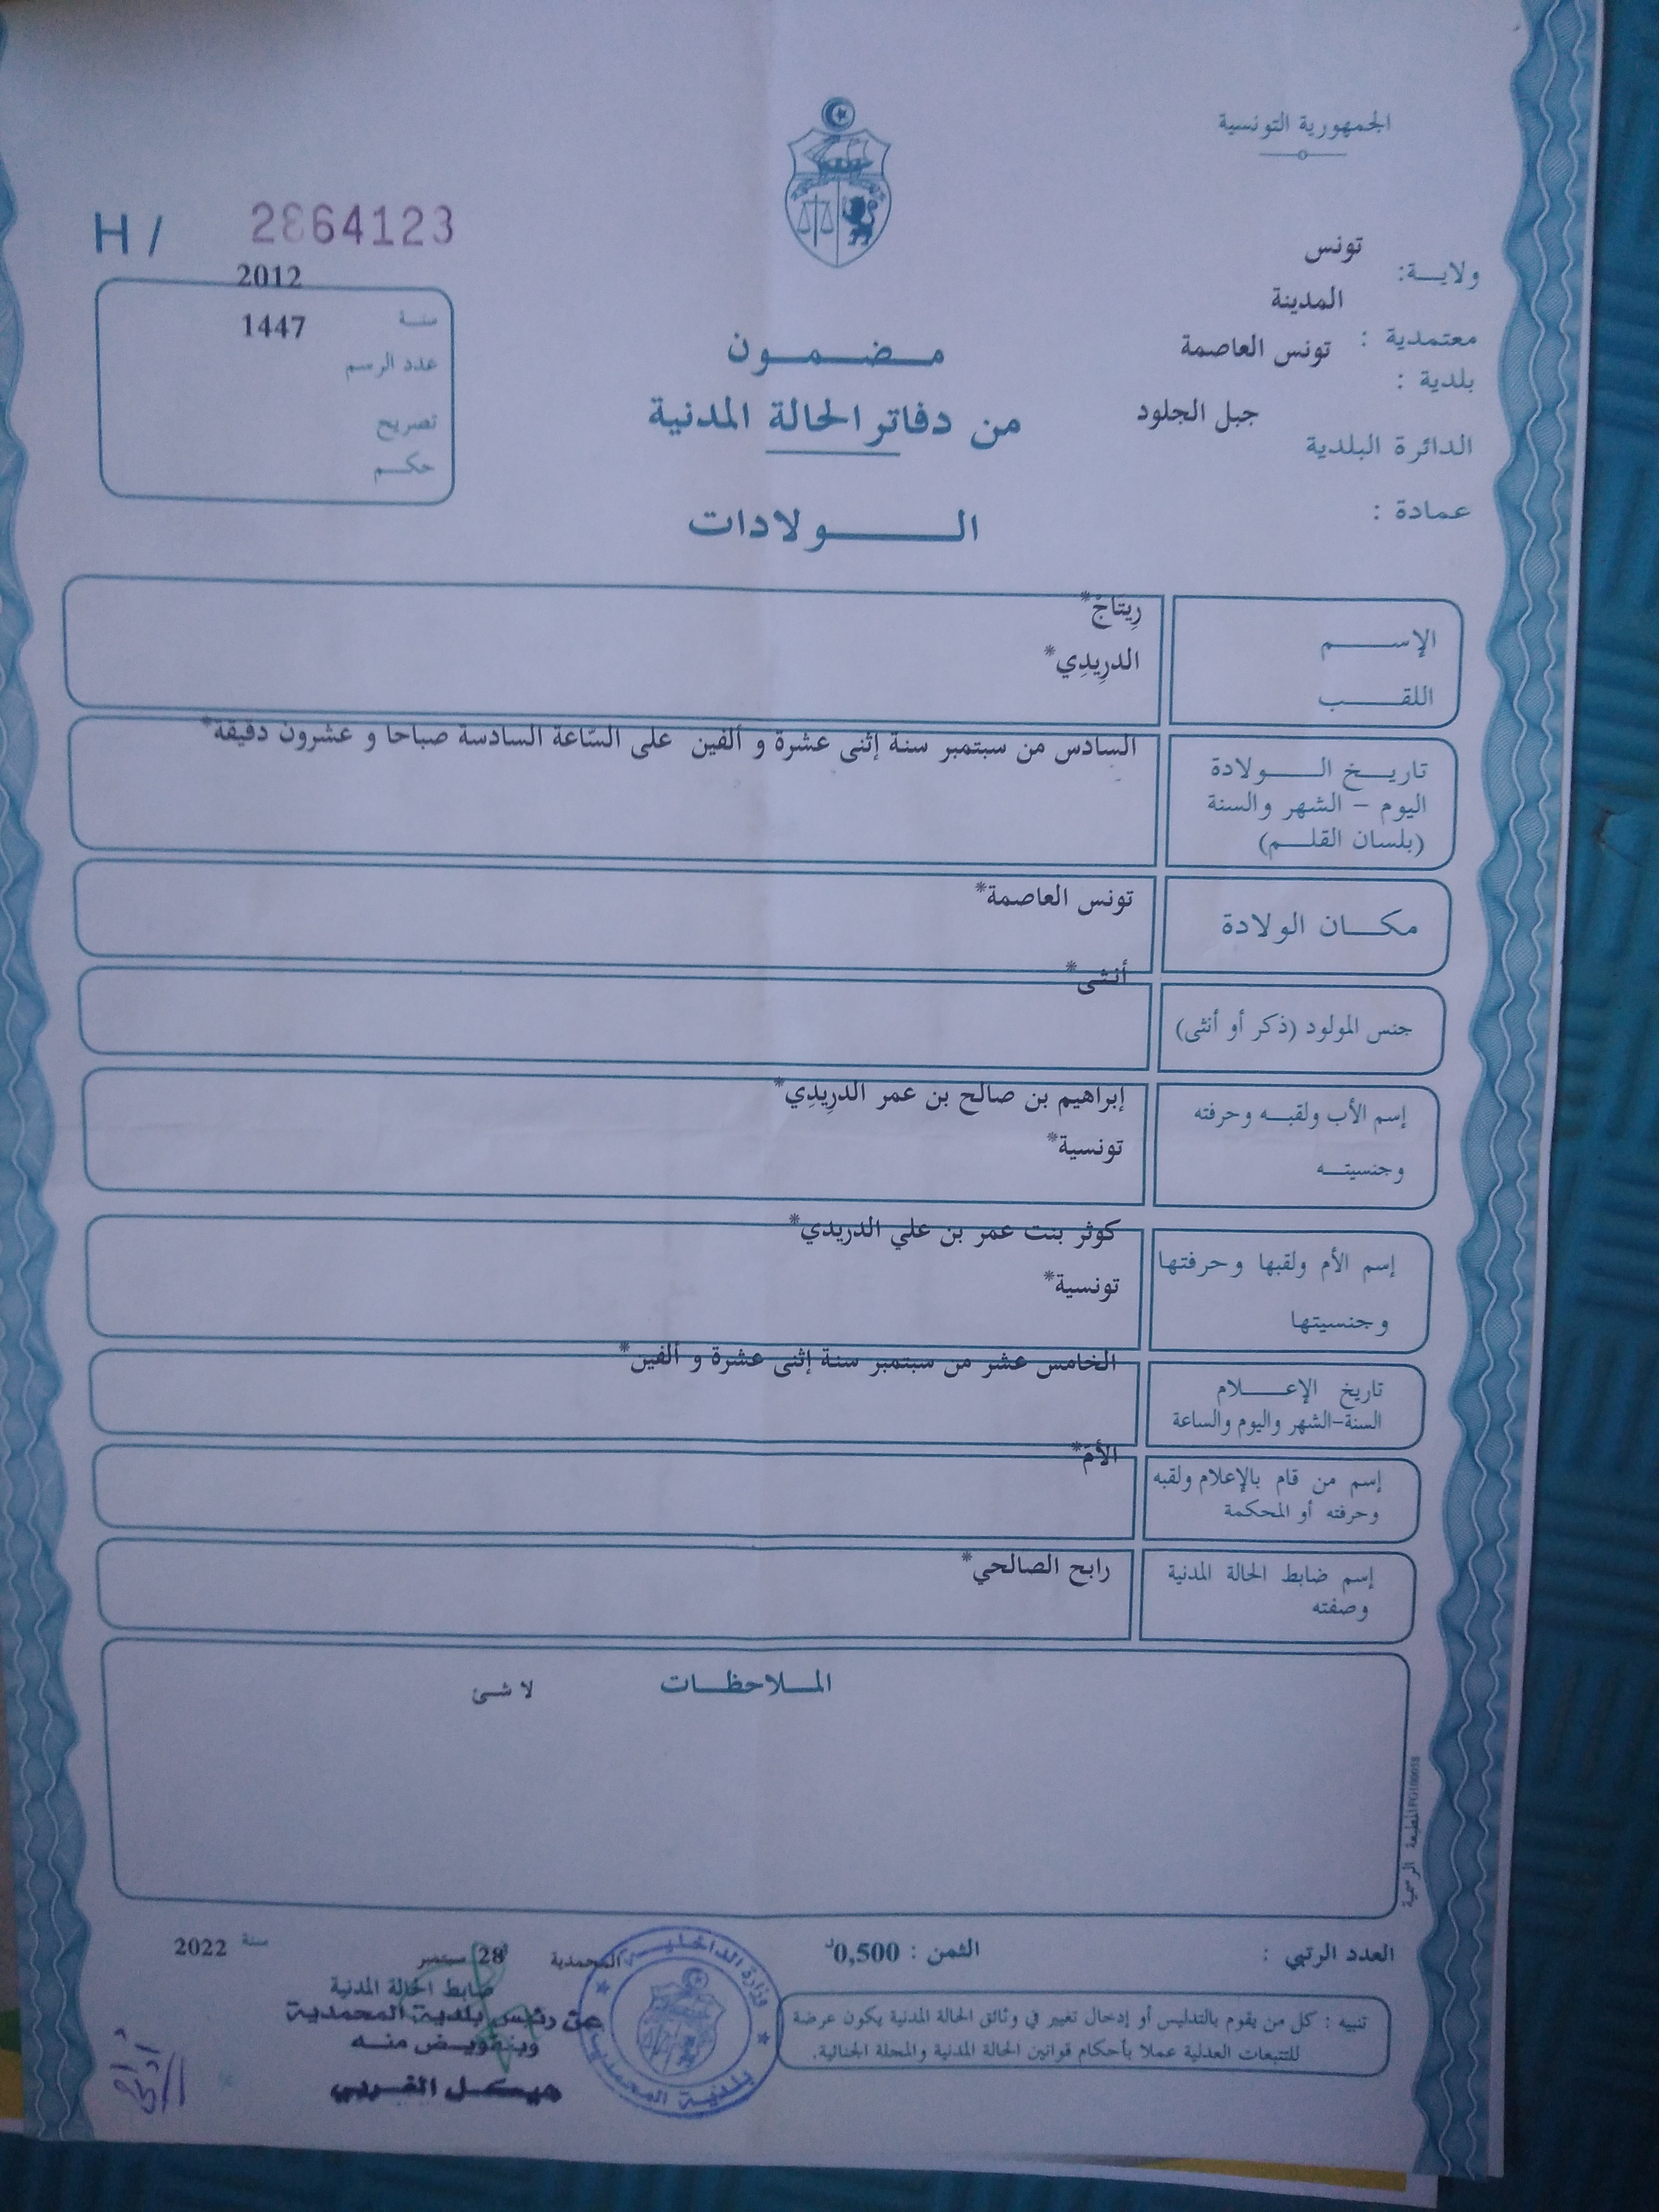 الجمهورية التونسية
ولايـــة: تونس
معتمدية : المدينة
بلدية : تونس العاصمة
الدائرة البلدية جبل الجلود
عمادة :
H / 2864123
سنـة 2012
عدد الرسم 1447
تصريح
حكـــم
مـــضـــمـــون
من دفاتر الحالة المدنية
الـــــــولادات
الإســـــم رِيتَاجْ*
اللقـــــب الدرِيدِي*
تاريـــخ الـــــولادة السادس من سبتمبر سنة إثنى عشرة و ألفين على السّاعة السادسة صباحا و عشرون دقيقة*
اليوم – الشهر والسنة
(بلسان القلـــم)
مكـــان الولادة تونس العاصمة*
جنس المولود (ذكر أو أنثى) أنثى*
إسم الأب ولقبـــه وحرفته إبراهيم بن صالح بن عمر الدرِيدِي*
وجنسيتـــه تونسية*
إسم الأم ولقبها وحرفتها كوثر بنت عمر بن علي الدريدي*
وجنسيتها تونسية*
تاريخ الإعـــــلام الخامس عشر من سبتمبر سنة إثنى عشرة و ألفين*
السنة-الشهر واليوم والساعة
إسم من قام بالإعلام ولقبه الأمّ*
وحرفته أو المحكمة
إسم ضابط الحالة المدنية رابح الصالحي*
وصفته
الملاحظـــات لا شئ
المطبعة الرسمية
العدد الرتبي :
الثمن : 0,500د
المحمدية 28 سبتمبر سنة 2022
ضابط الحالة المدنية
عن رئيس بلدية المحمدية
وبتفويض منه
هيكل الغربي
وزارة الداخلية
بلدية المحمدية
تنبيه : كل من يقوم بالتدليس أو إدخال تغيير في وثائق الحالة المدنية يكون عرضة
للتتبعات العدلية عملا بأحكام قوانين الحالة المدنية والمجلة الجنائية.